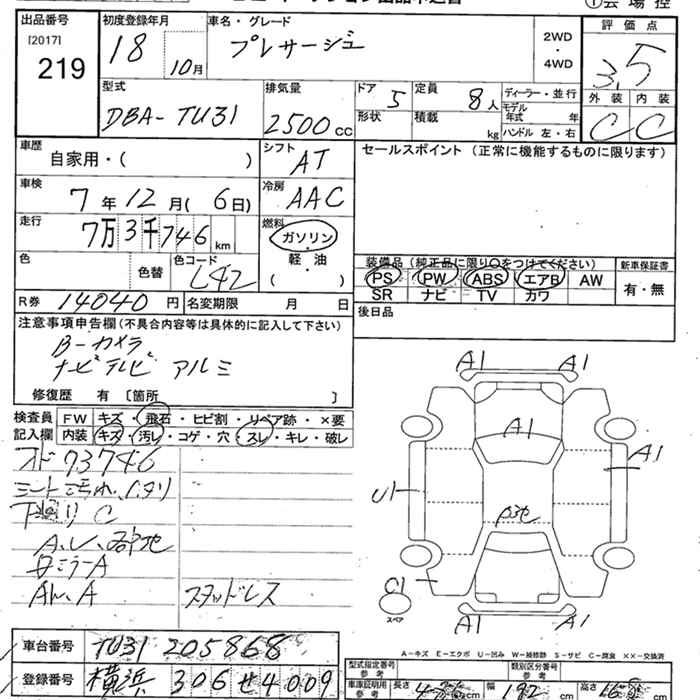 出品番号 初度登録年月 車名・グレード 評価点
[2017] 219 18 10月 プレサージュ 2WD・4WD 3.5
型式 排気量 ドア 定員 ディーラー・並行 外装 内装
DBA-TU31 2500cc 5 8人 モデル年式 年 C C
形状 積載 kg ハンドル 左・右
車歴 シフト セールスポイント (正常に機能するものに限ります)
自家用・( ) AT
車検 冷房
7年12月(6日) AAC
走行 燃料
7万3千746km ガソリン
色 色替 色コード L42 軽・油 ( )
装備品 (純正品に限り○をつけてください) 新車保証書
PS PW ABS エアB AW 有・無
SR ナビ TV カワ
R券 14040円 名変期限 月 日
後日品
注意事項申告欄(不具合内容等は具体的に記入して下さい)
B-カメラ
ナビテレビ アルミ
修復歴 有 [箇所 ]
検査員 FW キズ・飛石・ヒビ割・リペア跡・×要
記入欄 内装 キズ・汚レ・コゲ・穴・スレ・キレ・破レ
オド73746
シート汚れ
下廻りC
A.U.
ミラーA
スタッドレス
A1 A1
A1
A1
U1
C1
スペア
A1 A1
A-キズ E-エクボ U-凹み W-補修跡 S-サビ C-腐食 ××-交換済
車台番号 TU31 205868
登録番号 横浜 306 せ 4009
型式指定番号 参考 類別区分番号 参考
車庫証明用 参考 長さ cm 幅 cm 高さ cm